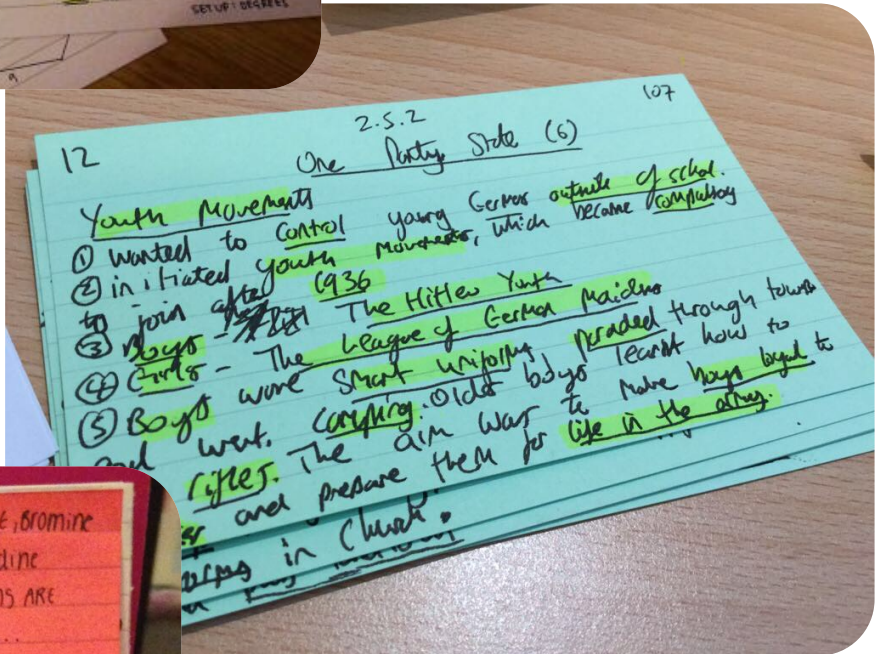 SET UP: DEGREES
9
12
2.5.2
107
One Party State (6)
Youth Movements
① wanted to control young Germans outside of school.
② initiated youth movements, which became compulsory
to join after 1936
③ Boys - The Hitler Youth
④ Girls - The League of German Maidens
⑤ Boys wore smart uniforms, paraded through towns
and went camping. Older boys learnt how to
rifles. The aim was to make boys loyal to
and prepare them for life in the army.
in Church.
, Bromine
dine
DS ARE